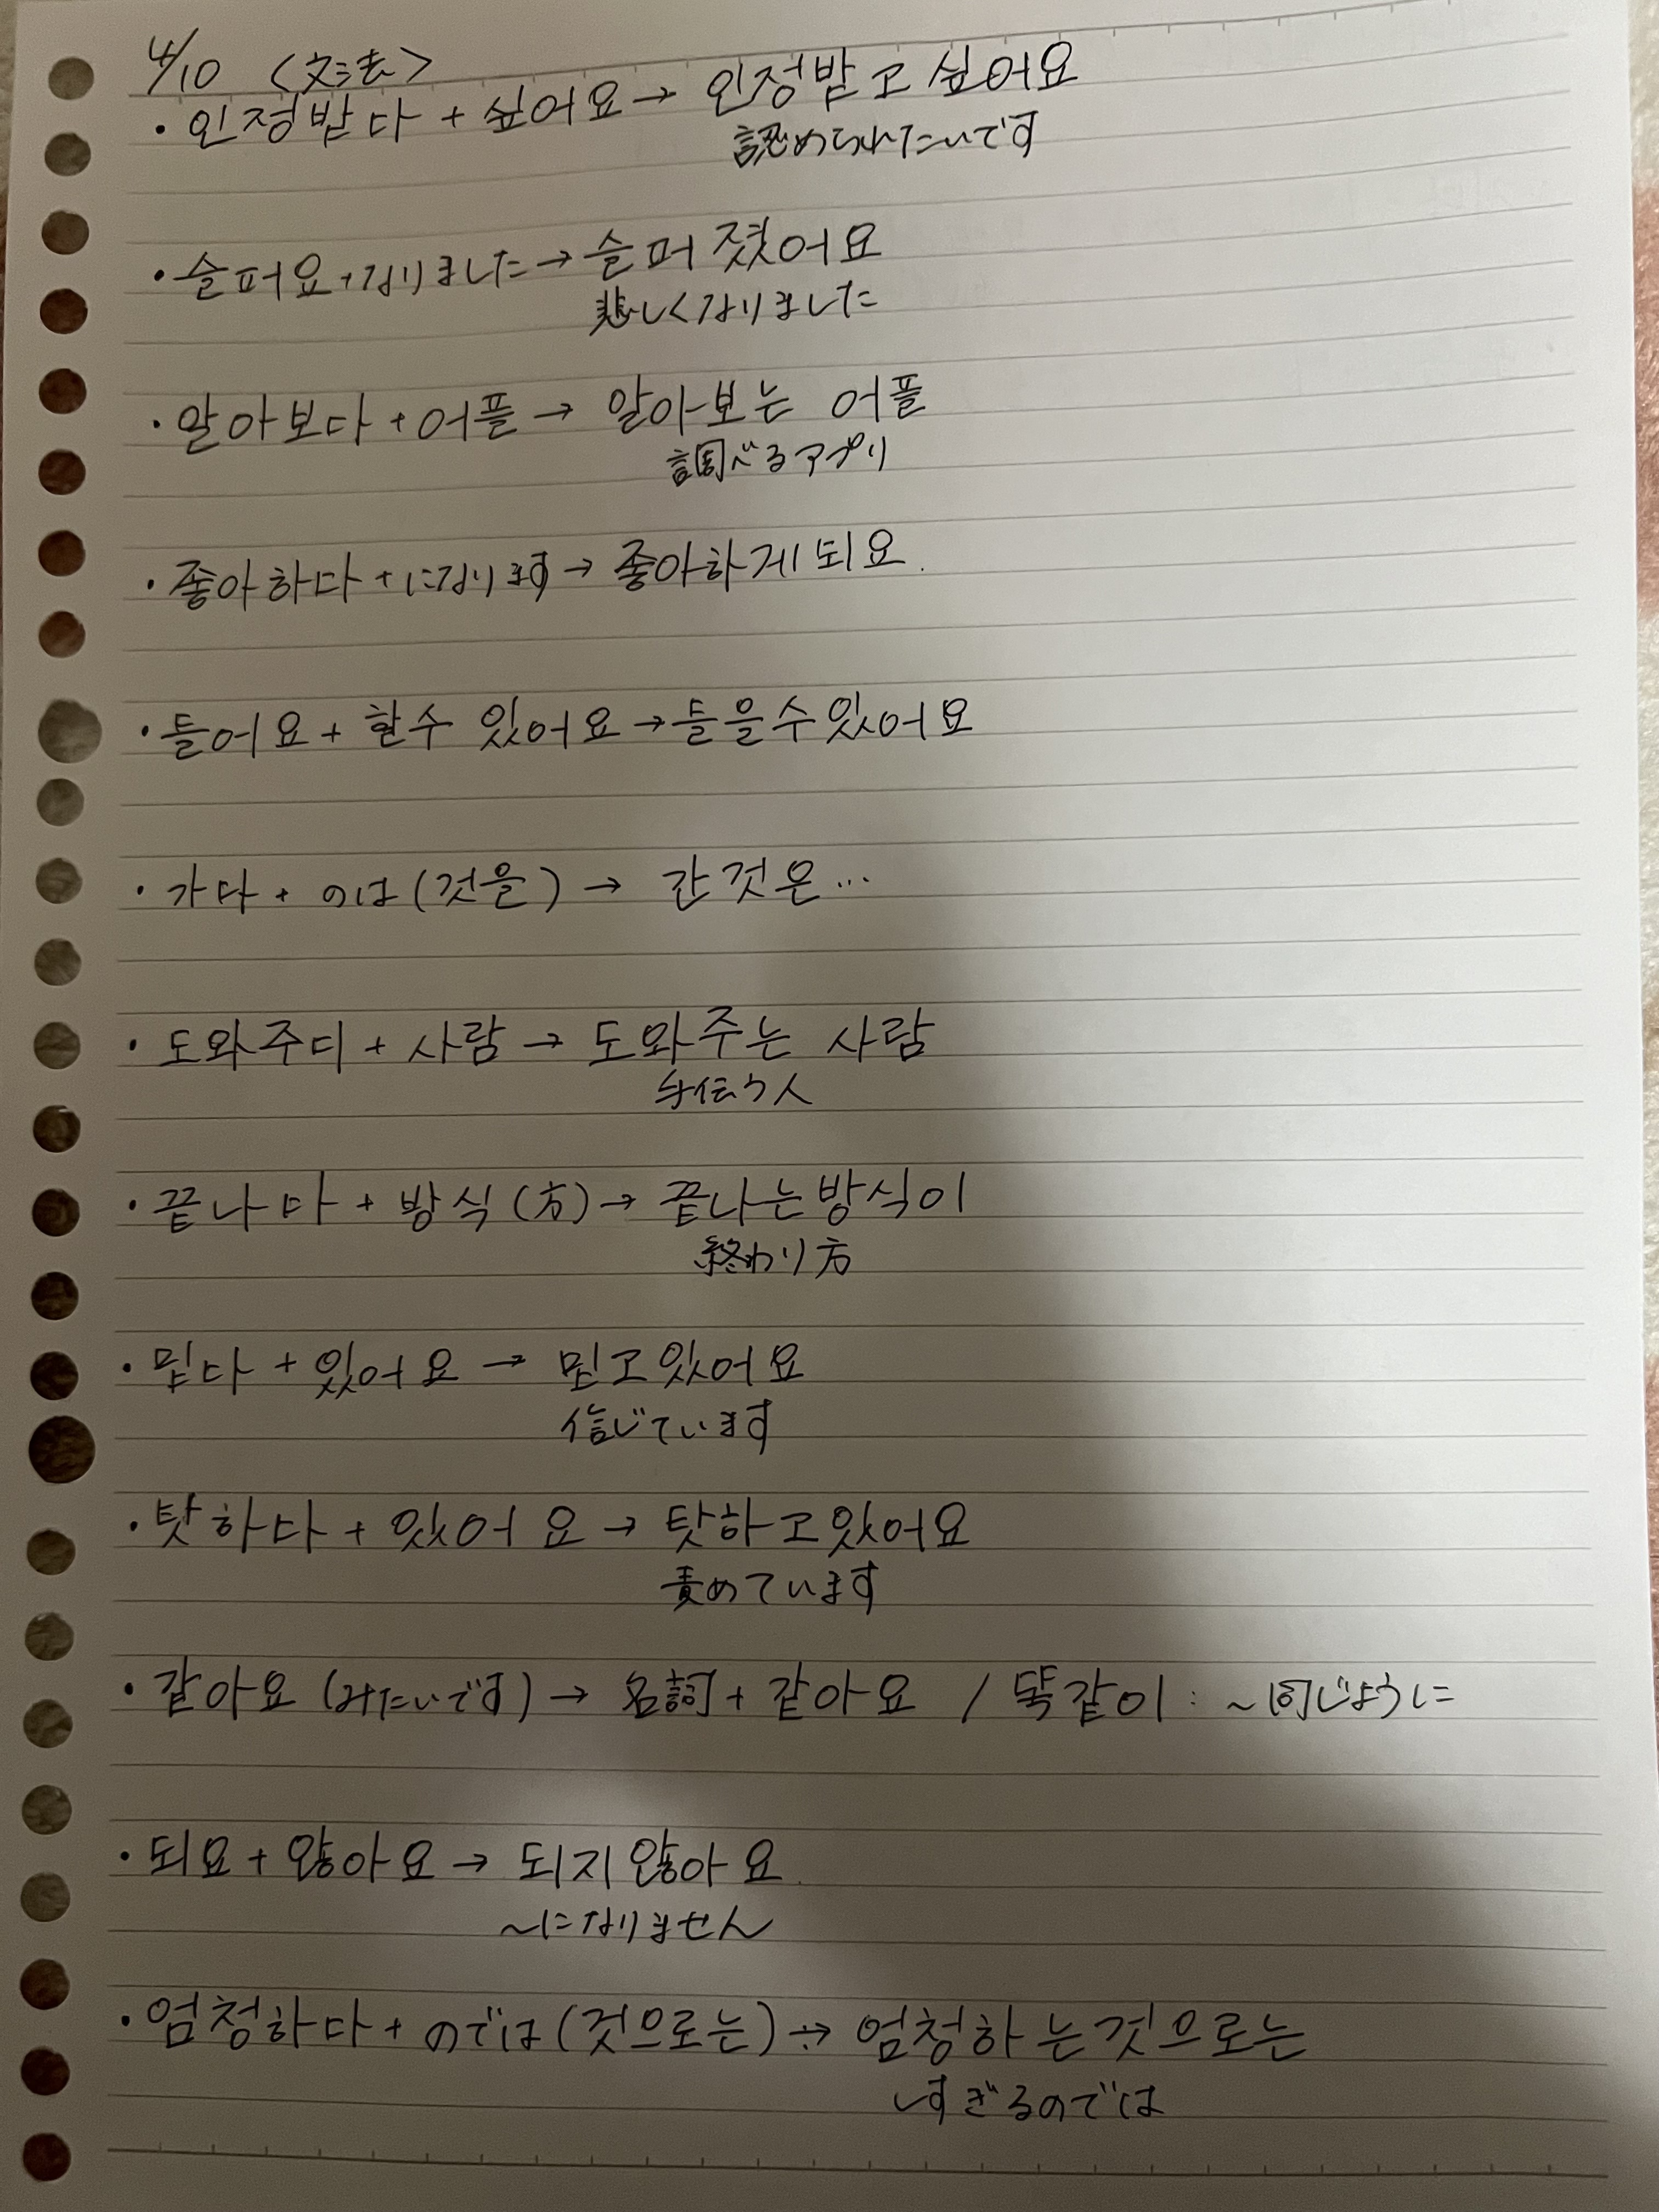 4/10 〈文法〉
・인정받다 + 싶어요 → 인정받고 싶어요
認められたいです
・슬퍼요 + なりました → 슬퍼졌어요
悲しくなりました
・알아보다 + 어플 → 알아보는 어플
調べるアプリ
・좋아하다 + になります → 좋아하게 되요.
・들어요 + 할수 있어요 → 들을수있어요
・가다 + のは(것을) → 간것은…
・도와주다 + 사람 → 도와주는 사람
手伝う人
・끝나다 + 방식(方) → 끝나는방식이
終わり方
・믿다 + 있어요 → 믿고있어요
信じています
・탓하다 + 있어요 → 탓하고있어요
責めています
・같아요(みたいです) → 名詞 + 같아요 / 똑같이 : ~同じように
・되요 + 않아요 → 되지않아요.
~になりません
・엄청하다 + のでは(것으로는) → 엄청하는것으로는
しすぎるのでは